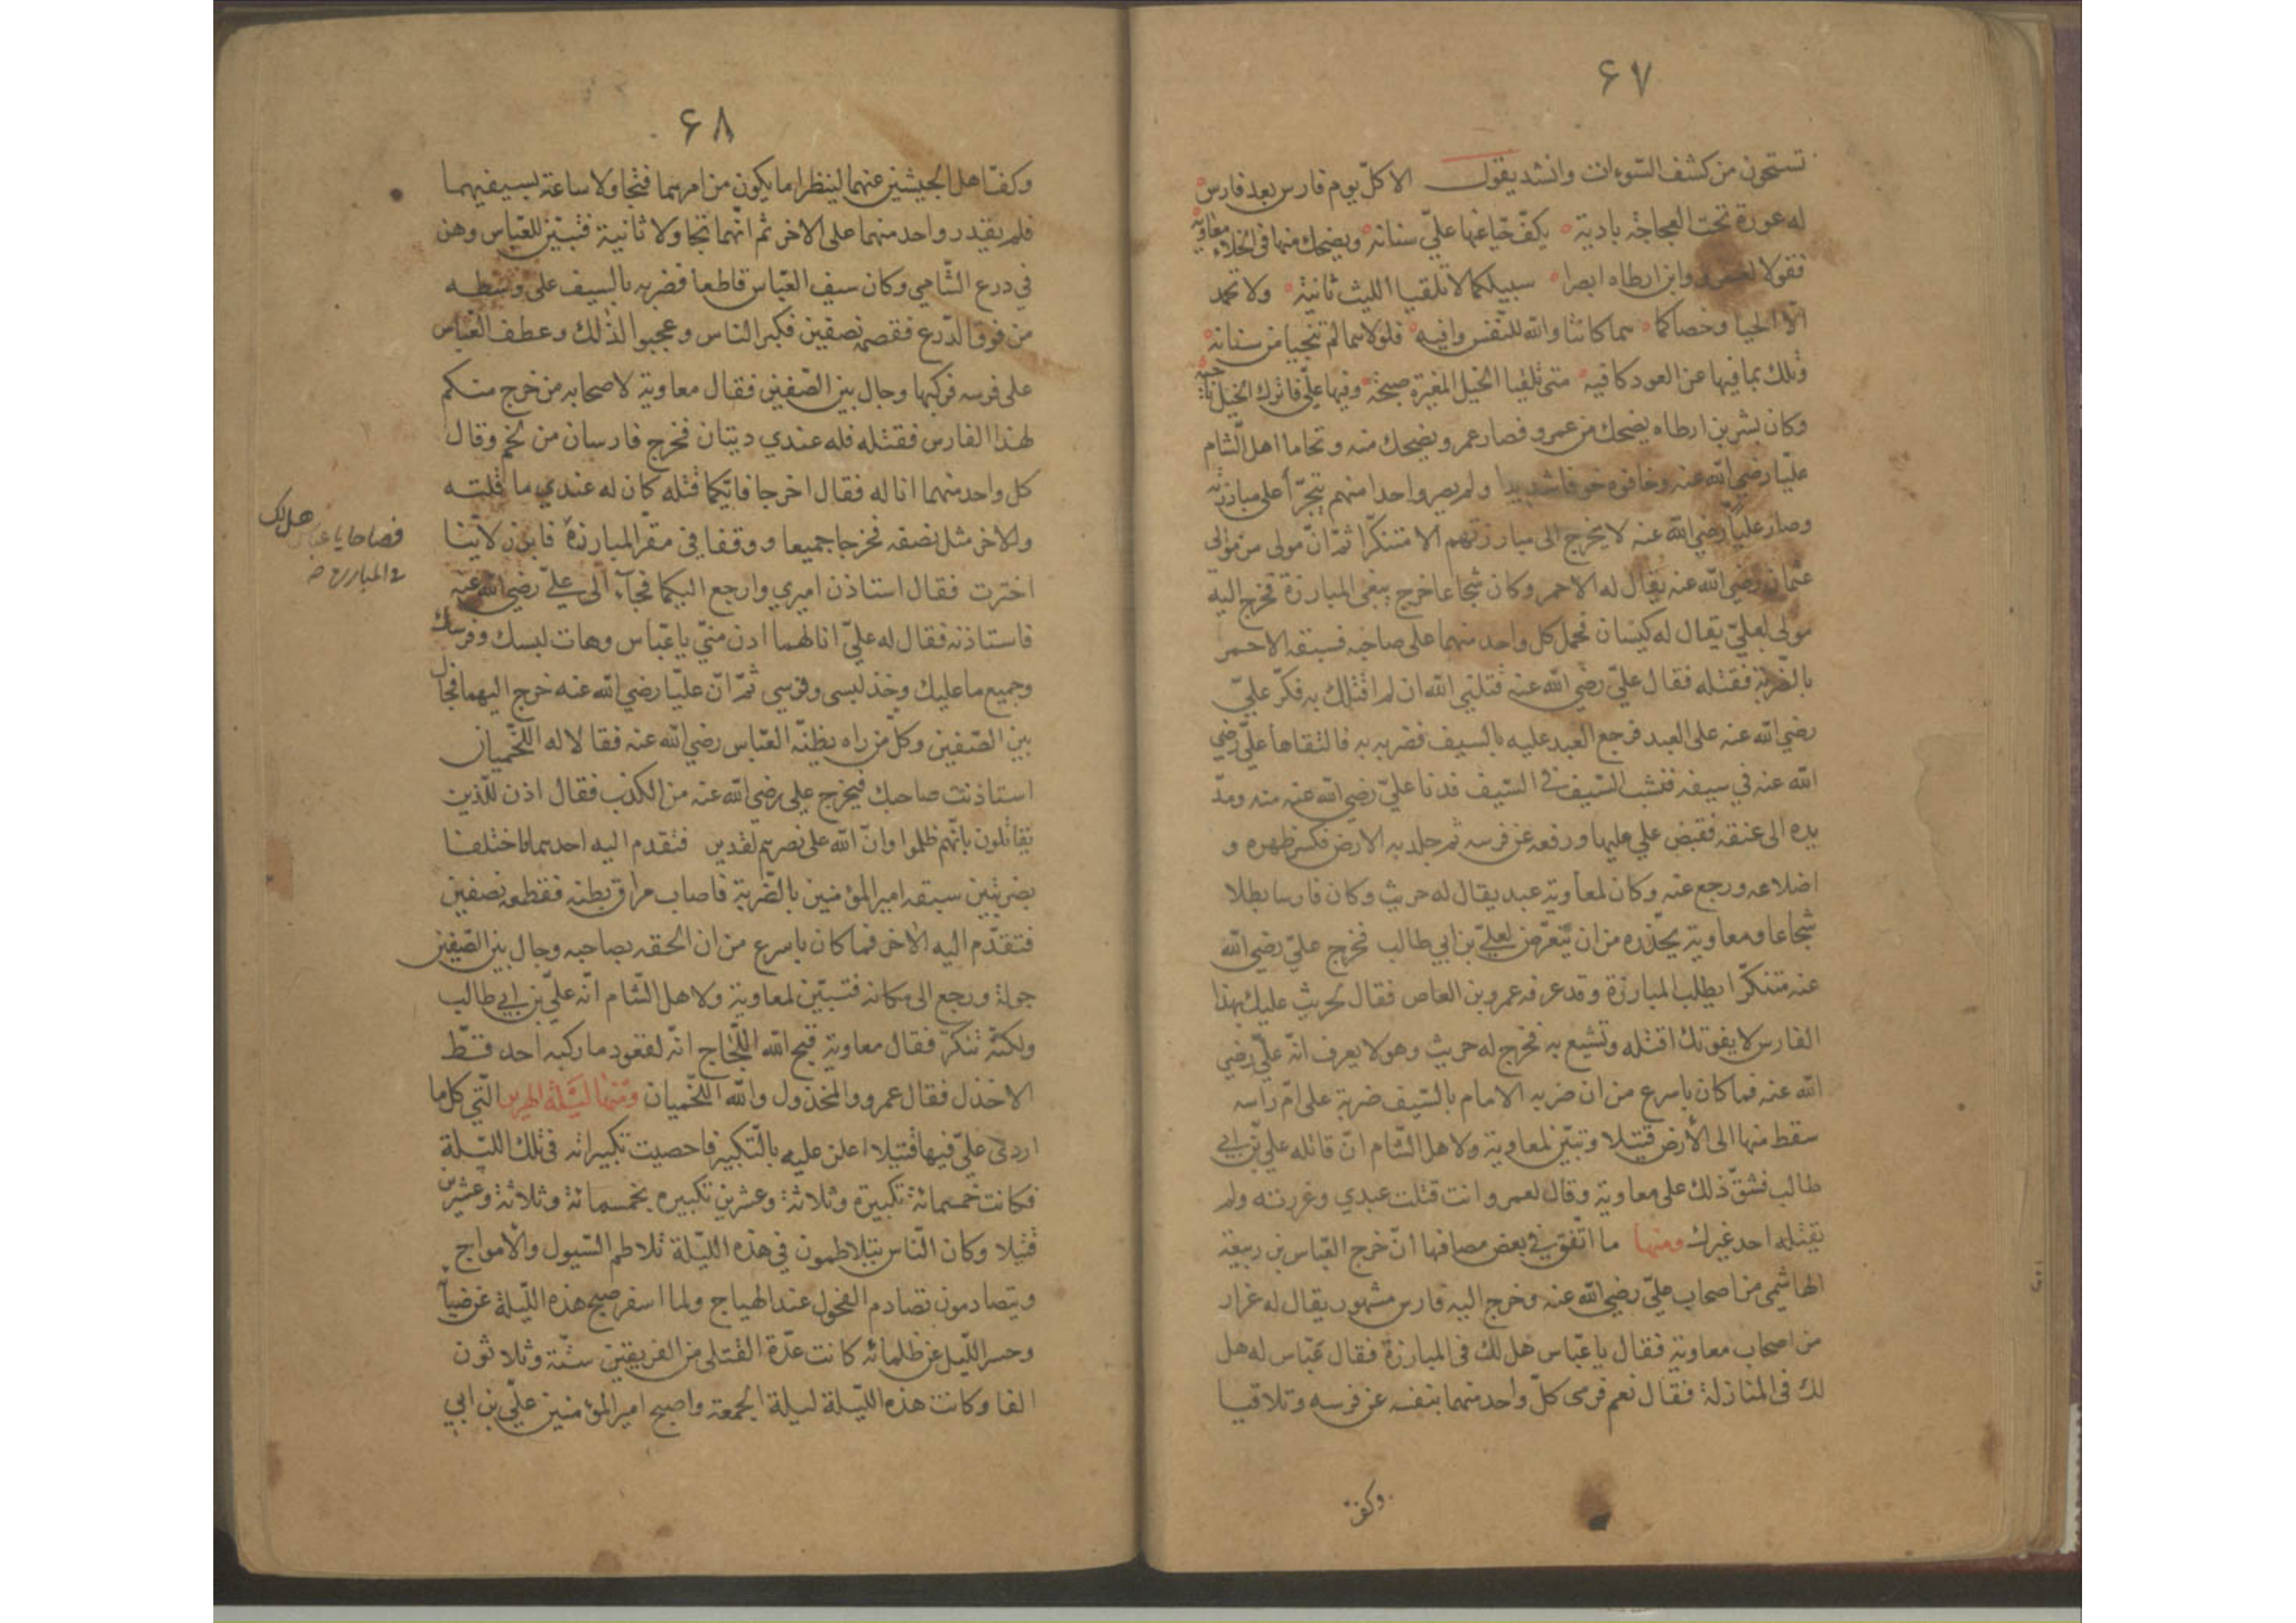 ۶۷
تستحون من كشف السّوءات وانشد يقول الا كلّ يوم فارس بعد فارس
له عورة تحت العجاجة بادية يكفّ حياءً عنها عليّ سنانه ويضحك منها في الخلاء معاوية
فقولا لعمرو وابن ارطاه ابصرا سبيلكما لا تلقيا الليث ثانية ولا تحمد
الّا الحيا وخصاكما هما كانتا والله للنّفس واقيه فلولاهما لم تنجيا من سنانه
وتلك بما فيها عن العود كافيه متى تلقيا الخيل المغيرة صبحة وفيها عليّ فاتركا الخيل
وكان بشر بن ارطاه يضحك من عمرو فصار عمرو يضحك منه وتحاما اهل الشام
عليّا رضي الله عنه وخافوه خوفا شديدا ولم يصر واحدا منهم يتجرّأ على مبارزته
وصار عليّا رضي الله عنه لا يخرج الى مبارزتهم الا متنكّرا ثمّ انّ مولى من موالي
عثمان رضي الله عنه يقال له الاحمر وكان شجاعا خرج يبغي المبارزة فخرج اليه
مولى لعليّ يقال له كيسان فحمل كل واحد منهما على صاحبه فسبقه الاحمر
بالضّربة فقتله فقال عليّ رضي الله عنه قتلني الله ان لم اقتلك به فكرّ عليّ
رضي الله عنه على العبد فرجع العبد عليه بالسيف فضربه به فالتقاها عليّ رضي
الله عنه في سيفه فنشب السّيف في السّيف فدنا عليّ رضي الله عنه منه ومدّ
يده الى عنقه فقبض علي عليها ورفعه عن فرسه ثم جلد به الارض فكسر ظهره و
اضلاعه ورجع عنه وكان لمعاوية عبد يقال له حريث وكان فارسا بطلا
شجاعا ومعاوية يحذّره من ان يتعرّض لعليّ بن ابي طالب فخرج عليّ رضي الله
عنه متنكّرا يطلب المبارزة وقد عرفه عمرو بن العاص فقال لحريث عليك بهذا
الفارس لا يفوتك اقتله وتشيع به فخرج له حريث وهو لا يعرف انّه عليّ رضي
الله عنه فما كان باسرع من ان ضربه الامام بالسّيف ضربة على امّ راسه
سقط منها الى الأرض قتيلا وتبيّن لمعاوية ولاهل الشّام انّ قاتله عليّ بن ابي
طالب فشقّ ذلك على معاوية وقال لعمرو انت قتلت عبدي وغررته ولم
يقتله احد غيرك ومنها ما اتّفق في بعض مصافها انّ خرج العبّاس بن ربيعة
الهاشمي من اصحاب عليّ رضي الله عنه وخرج اليه فارس مشهور يقال له غرار
من اصحاب معاوية فقال يا عبّاس هل لك في المبارزة فقال عبّاس له هل
لك في المنازلة فقال نعم فرمى كلّ واحد منهما بنفسه عن فرسه وتلاقيا
وكفّ
۶۸
وكفّ اهل الجيشين عنهما لينظرا ما يكون من امرهما فتجاولا ساعة بسيفيهما
فلم يقدر واحد منهما على الاخر ثم انّهما تجاولا ثانية فتبيّن للعبّاس وهن
في درع الشّامي وكان سيف العبّاس قاطعا فضربه بالسيف على وسطه
من فوق الدّرع فقصمه نصفين فكبر الناس وعجبوا لذلك وعطف العبّاس
على فرسه فركبها وجال بين الصّفين فقال معاوية لاصحابه من خرج منكم
لهذا الفارس فقتله فله عندي ديتان فخرج فارسان من لخم وقال
كل واحد منهما انا له فقال اخرجا فايّكما قتله كان له عندي ما قلته
والاخر مثل نصفه فخرجا جميعا ووقفا في مقرّ المبارزة فابرز لايّنا
فصاحا يا عباس هل لك
في المبارزة
اخترت فقال استاذن اميري وارجع اليكما فجآء الى عليّ رضي الله عنه
فاستاذنه فقال له عليّ انا لهما ادن منّي يا عبّاس وهات لبسك وفرسك
وجميع ما عليك وخذ لبسي وفرسي ثمّ انّ عليّا رضي الله عنه خرج اليهما فجال
بين الصّفين وكلّ من راه يظنّه العبّاس رضي الله عنه فقالا له اللّخميان
استاذنت صاحبك فيخرج علي رضي الله عنه من الكذب فقال اذن للّذين
يقاتلون بانّهم ظلموا وانّ الله على نصرهم لقدير فتقدم اليه احدهما فاختلفا
بضربتين سبقه امير المؤمنين بالضّربة فاصاب مراق بطنه فقطعه نصفين
فتقدّم اليه الاخر فما كان باسرع من ان الحقه بصاحبه وجال بين الصّفين
جولة ورجع الى مكانه فتبيّن لمعاوية ولاهل الشّام انّه عليّ بن ابي طالب
ولكنّه تنكرّ فقال معاوية قبح الله اللّجاج انّه لقعود ما ركبه احد قطّ
الا خذل فقال عمرو والمخذول والله اللّخميان ومنها ليلة الهرير الّتي كل ما
اردى عليّ فيها قتيلا اعلن عليه بالتّكبير فاحصيت تكبيراته في تلك اللّيلة
فكانت خمسمائة تكبيرة وثلاثة وعشرين تكبيره بخمسمائة وثلاثة وعشرين
قتيلا وكان النّاس يتلاطمون في هذه اللّيلة تلاطم السّيول والأمواج
ويتصادمون تصادم الفحول عند الهياج ولما اسفر صبح هذه اللّيلة عن ضيآ
وحسر اللّيل عن ظلمائه كانت عدّة القتلى من الفريقين ستّة وثلاثون
الفا وكانت هذه اللّيلة ليلة الجمعة واصبح امير المؤمنين عليّ بن ابي